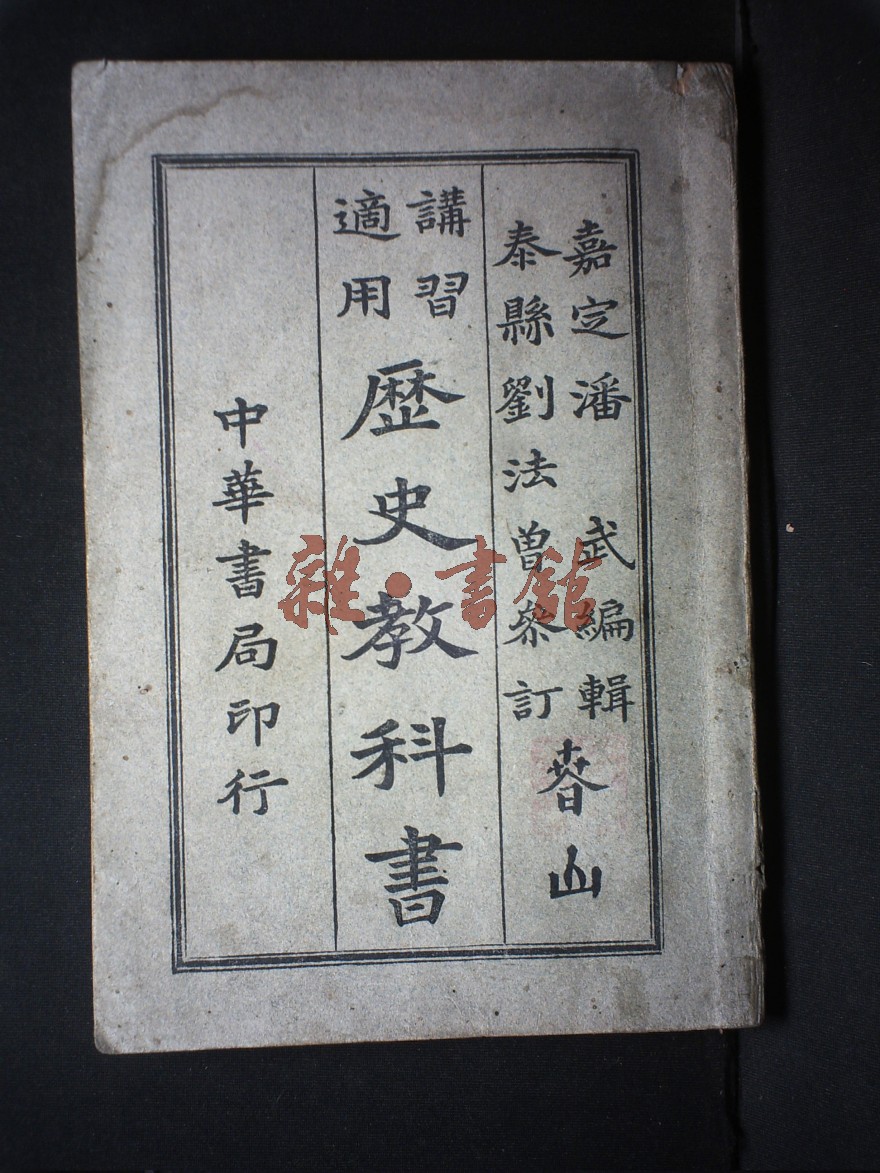 嘉定潘 武編輯
泰縣劉法曾參訂
春山
講習
適用
歷史教科書
中華書局印行
雜·書館